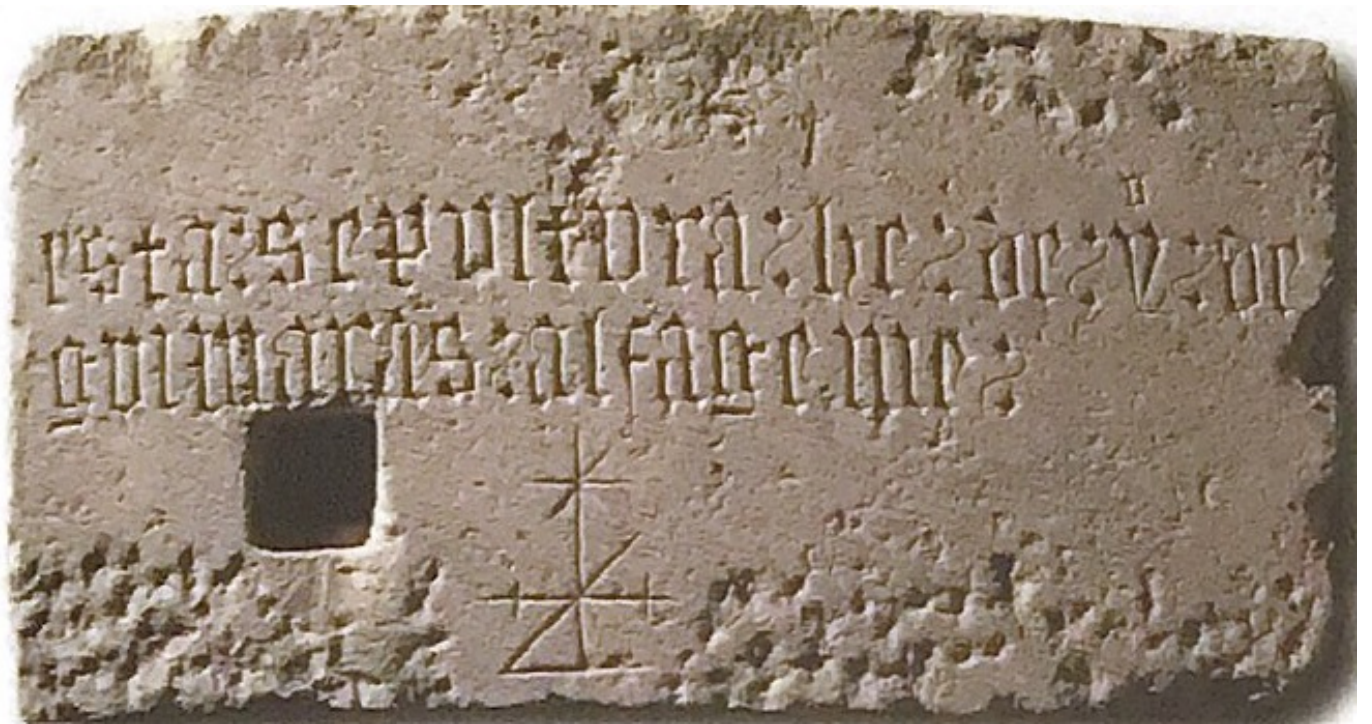 esta : sepultura : he : de : vº : de
guimarães : alfageme :